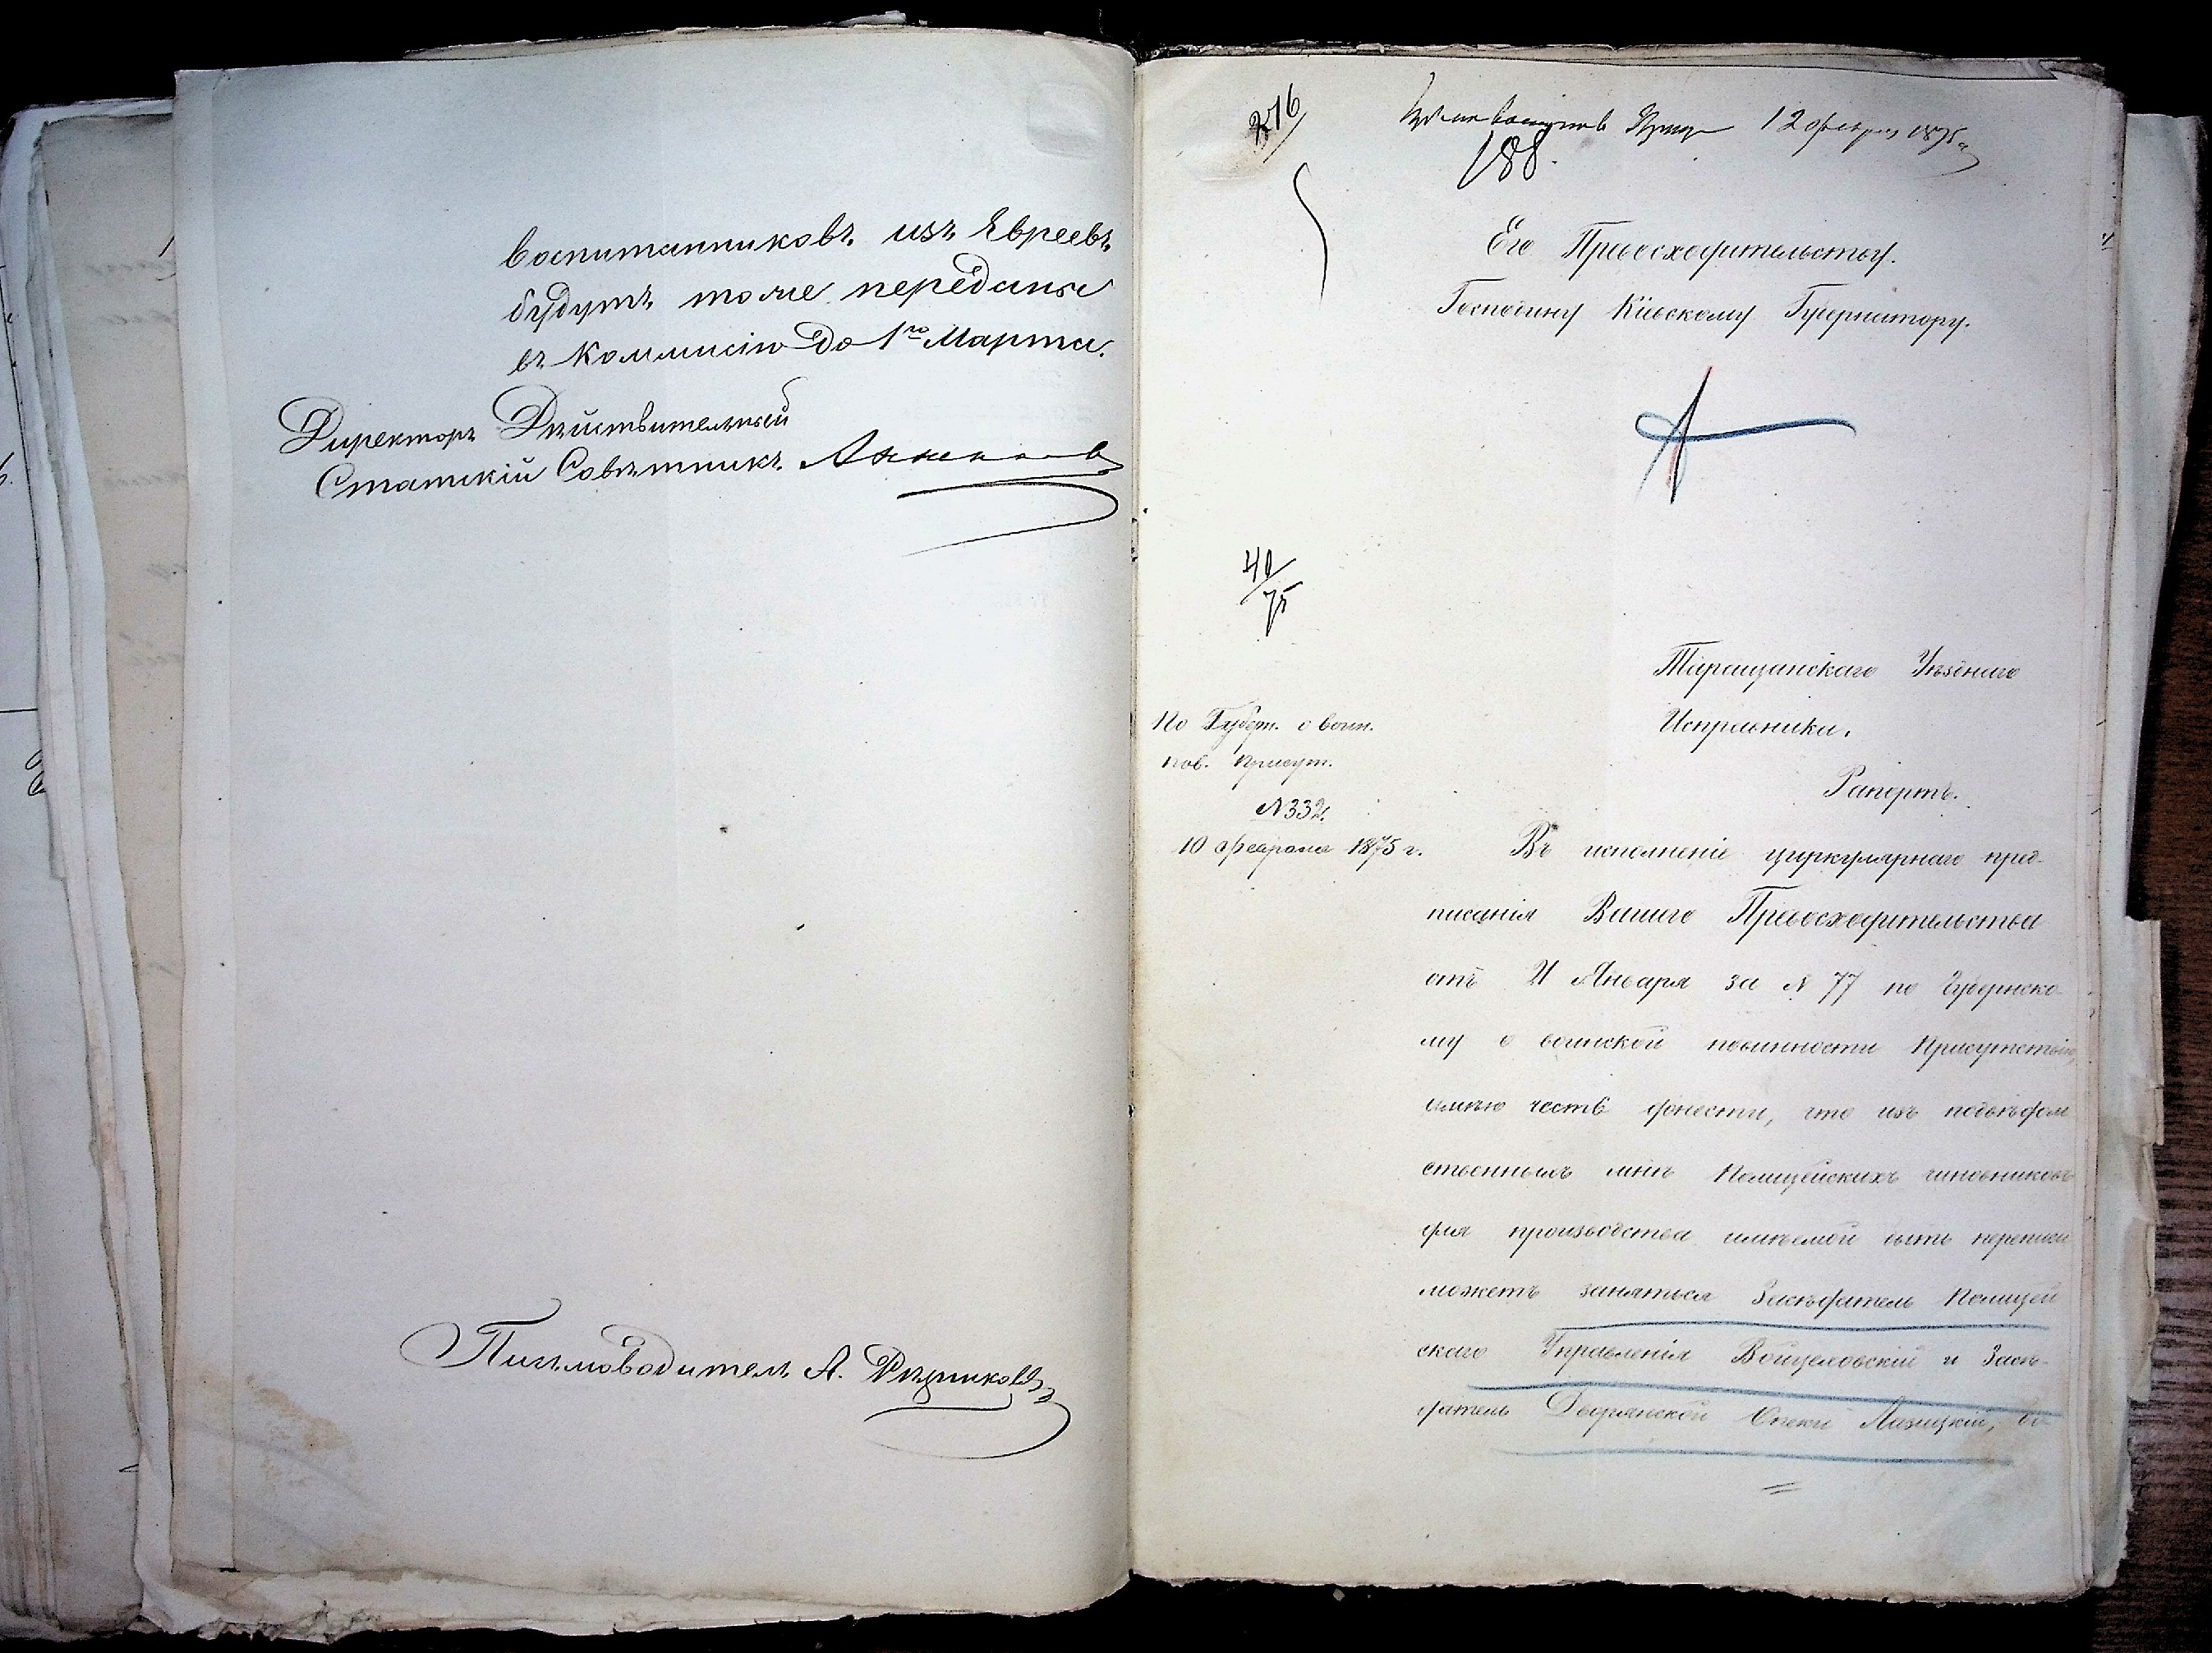 воспитанниковъ изъ Евреевъ
будутъ тоже переданы
въ Коммисію до 1го Марта.
Директоръ Дѣйствительный
Статскій Совѣтникъ
Письмоводитель А.
216
12 февраля 1875 г.
188.
Его Превосходительству
Господину Кіевскому Губернатору.
40/75
Таращанскаго Уѣзднаго
Исправника.
Рапортъ.
По Губерн. о воин.
пов. Присут.
№ 332.
10 февраля 1875 г.
Въ исполненіе циркулярнаго пред-
писанія Вашего Превосходительства
отъ 21 Января за № 77 по Губернско-
му о воинской повинности Присутствію,
имѣю честь донести, что изъ подвѣдом
ственныхъ мнѣ Полицейскихъ чиновниковъ
для производства имѣемой быть переписи
можетъ заняться Засѣдатель Полицей
скаго Управленія Войцеховскій и Засѣ-
датель Дворянской Опеки